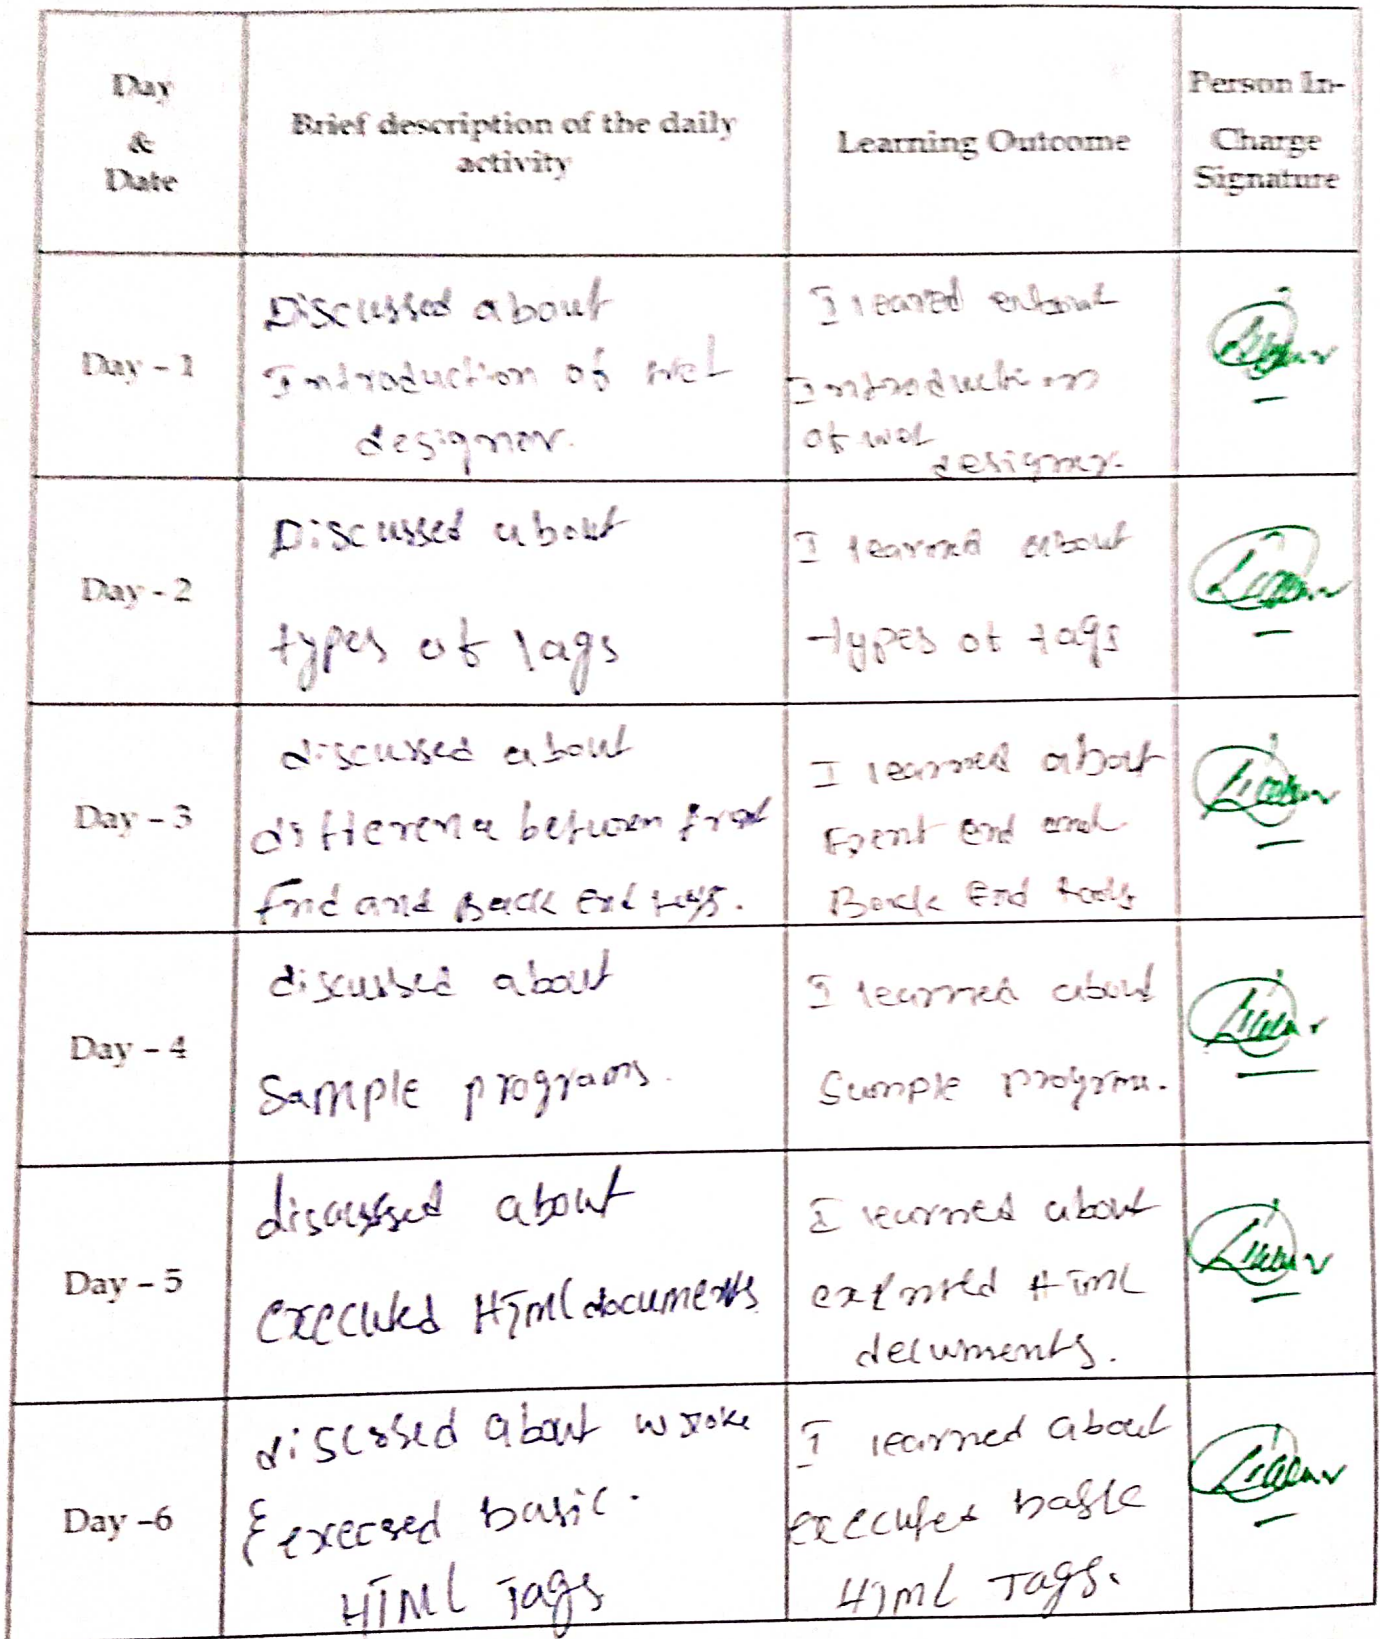 Day
&
Date
Brief description of the daily
activity
Learning Outcome
Person In-
Charge
Signature
Day - 1
Discussed about
Introduction of
designer.
I leared about
Introduction
of
designer.
Day - 2
Discussed about
types of tags
I learned about
types of tags
Day - 3
discussed about
between
End and Back End
I learned about
Front End and
Back End tools
Day - 4
discussed about
Sample programs.
I learned about
Sample
Day - 5
discussed about
executed HTML documents
I learned about
HTML
documents.
Day -6
about wroke
& basic.
HTML Tags
I learned about
HTML Tags.